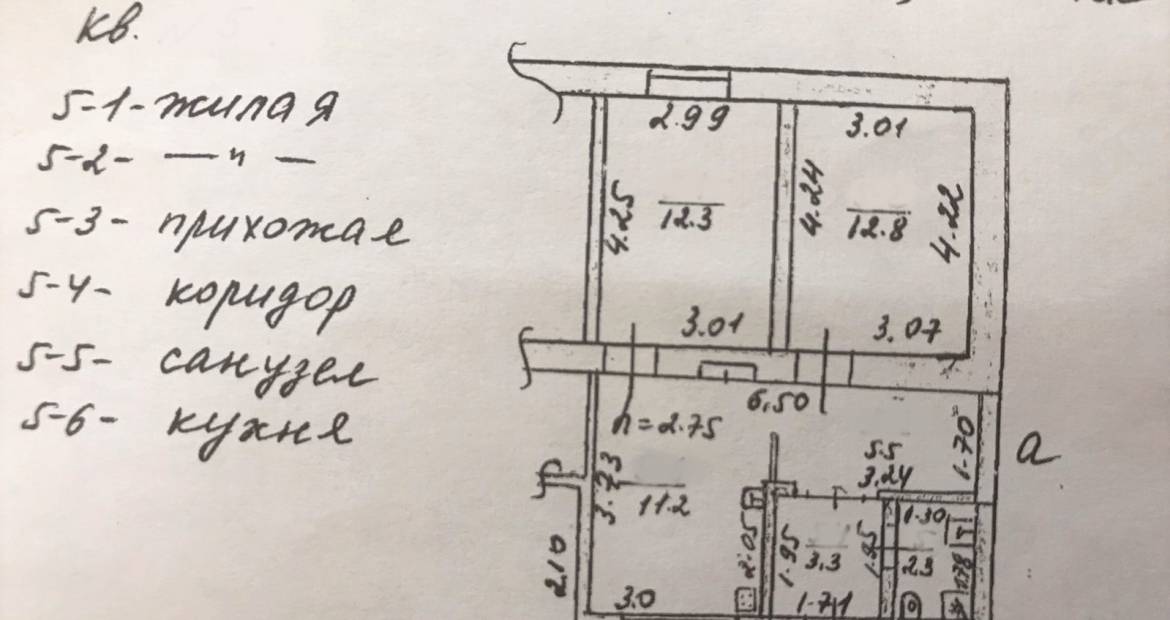 кв.
5-1- жилая
5-2- — " —
5-3- прихожая
5-4- коридор
5-5- санузел
5-6- кухня
2.99
3.01
4.25
12.3
4.24
12.8
4.22
3.01
3.07
6,50
h=2.75
1.70
а
5.5
3,24
3.73
11.2
2.05
1.95
3,3
1.95
1.30
2.3
1.78
2.10
3.0
1.71